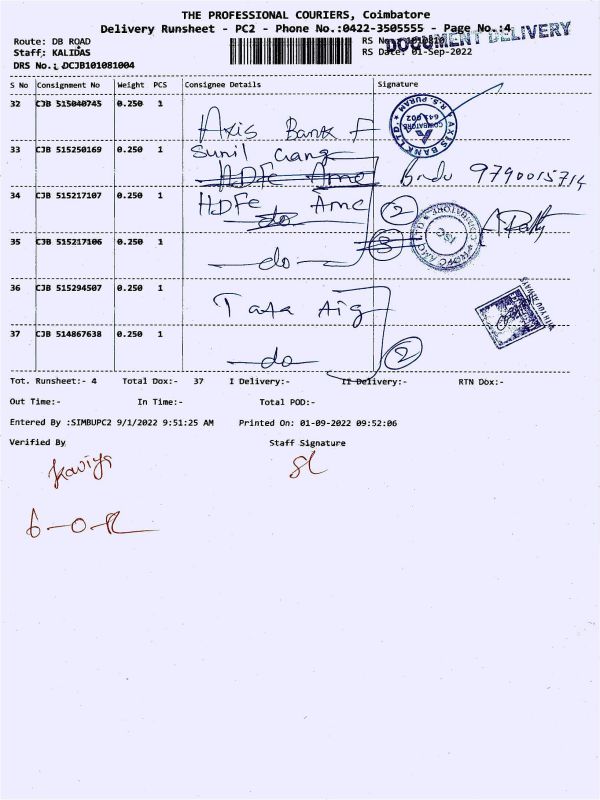 THE PROFESSIONAL COURIERS, Coimbatore
Delivery Runsheet - PC2 - Phone No.:0422-3505555 - Page No.:4
DOCUMENT DELIVERY
Route: DB ROAD
Staff: KALIDAS
RS Date: 01-Sep-2022
DRS No.: DCJB101081004
S No Consignment No Weight PCS Consignee Details Signature
32 CJB 515040745 0.250 1
Axis Bank F
33 CJB 515250169 0.250 1 Sunil Gang
HDFC Amc Bindu 9790015714
34 CJB 515217107 0.250 1 HDFC Amc 2
do
35 CJB 515217106 0.250 1 3
do
36 CJB 515294507 0.250 1
Tata Aig
37 CJB 514867638 0.250 1
do 2
AXIS BANK LTD
R.S. PURAM
COIMBATORE
641 002
ISC
Tot. Runsheet:- 4 Total Dox:- 37 I Delivery:- II Delivery:- RTN Dox:-
Out Time:- In Time:- Total POD:-
Entered By :SIMBUPC2 9/1/2022 9:51:25 AM Printed On: 01-09-2022 09:52:06
Verified By Staff Signature
Kaviya